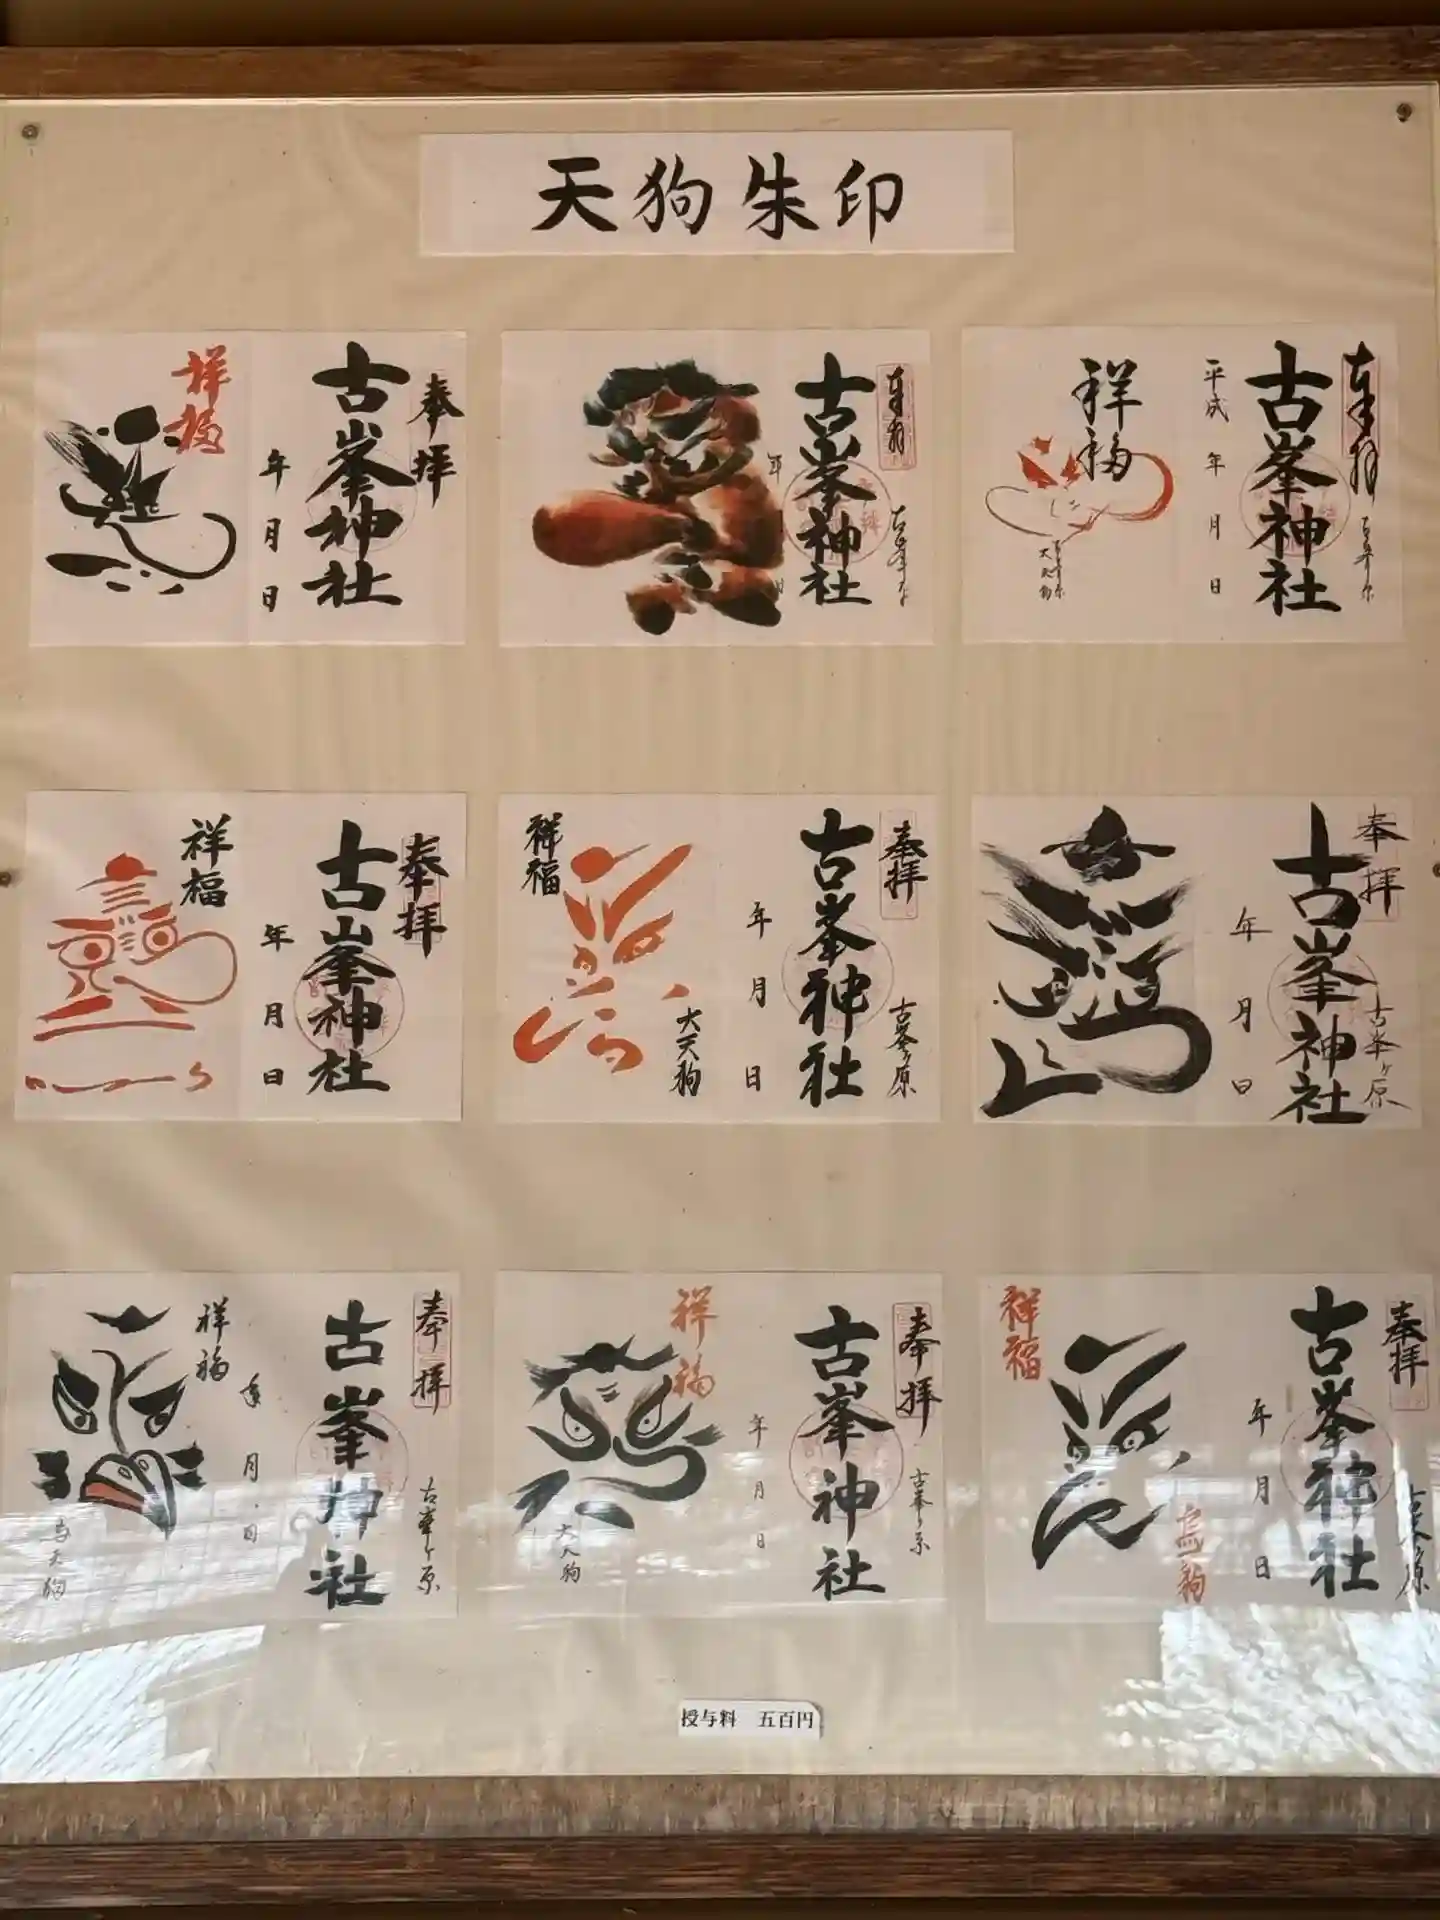 天狗朱印
奉拝
古峯神社
年 月 日
祥福
古峯神社
年
日
古峯神社
平成 年 月 日
祥福
大天狗
奉拝
古峯神社
年 月 日
祥福
奉拝
古峯ヶ原
古峯神社
年 月 日
祥福
大天狗
奉拝
古峯ヶ原
古峯神社
年 月 日
奉拝
古峯ヶ原
古峯神社
年 月 日
祥福
奉拝
古峯ヶ原
古峯神社
年 月 日
祥福
大天狗
奉拝
古峯神社
年 月 日
祥福
授与料 五百円